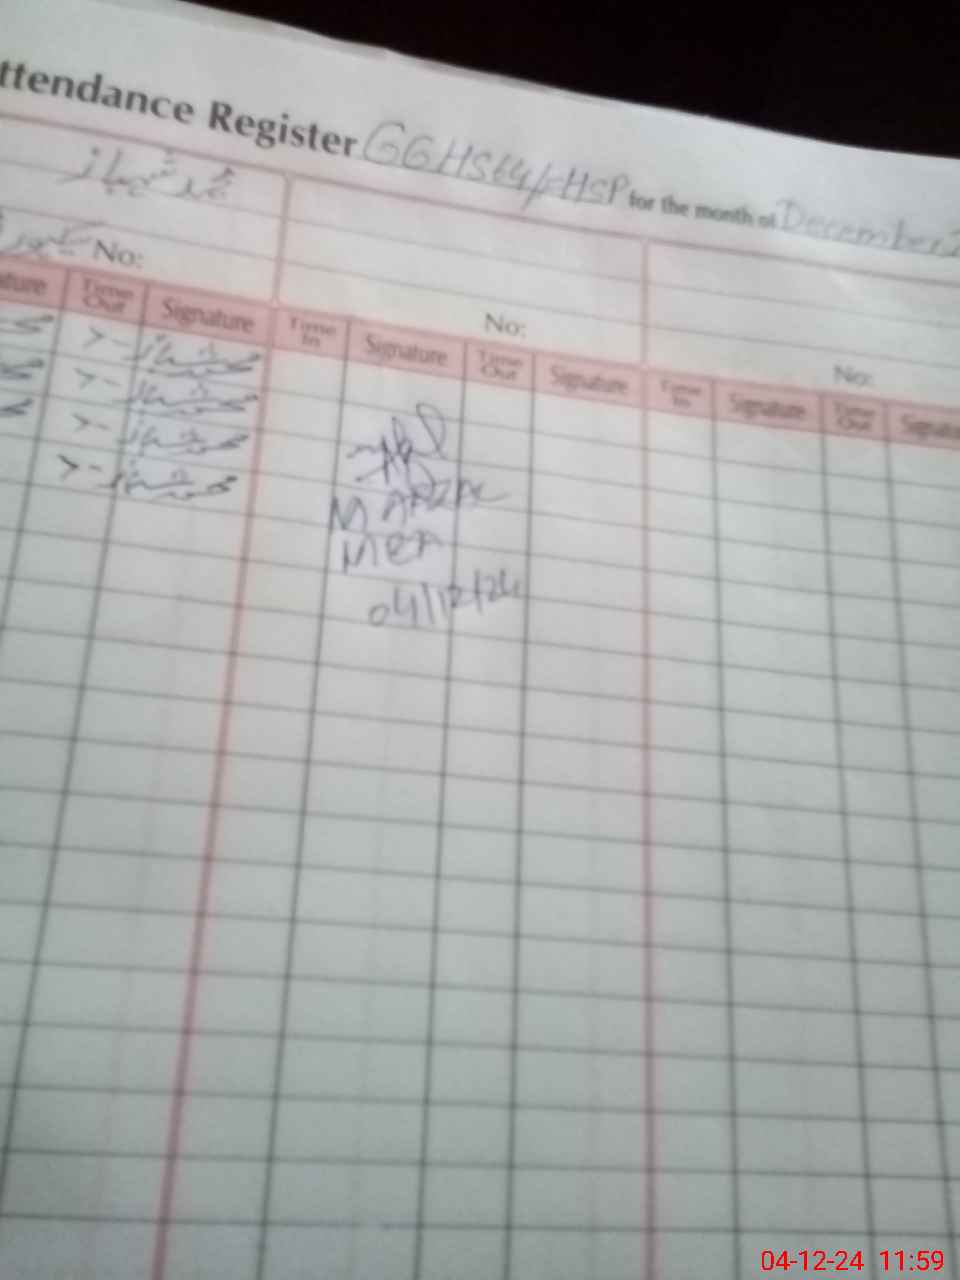 ttendance Register GGHS 14/ HSP for the month of December
محمد شہباز
No:
No:
No:
ture Time Out Signature Time In Signature Time Out Signature Time In Signature Time Out Signatu
محمد شہباز
محمد شہباز
محمد شہباز
محمد شہباز
M
MEA
04/12/24
04-12-24 11:59